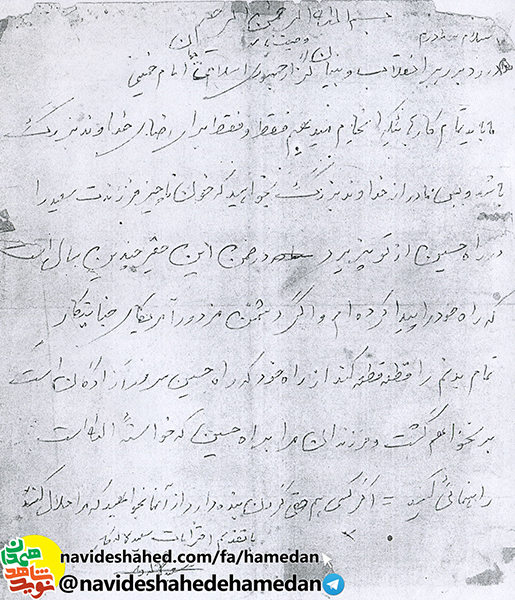 بسم الله الرحمن الرحیم
وصیت نامه
سلام بر مادرم
درود بر رهبر انقلاب و بنیان گزار جمهوری اسلامی امام خمینی
ما باید تمام کارهائیکه انجام میدهیم فقط و فقط برای رضای خداوند بزرگ
باشد و پس مادر از خداوند بزرگ بخواهید که خون ناچیز فرزندت سعید را
در راه حسین از تو بپزیرد و ضمن این حقیر چندین سال است
که راه خود را پیدا کرده ام و اگر دشمن مزدور آمریکای جنایتکار
تمام بدنم را قطعه قطعه کند از راه خود که راه حسین سرور آزادگان است
بر نخواهم گشت و فرزندان مرا براه حسین که خواسته الله است
راهنمائی کنید = اگر کسی هم حقی گردن بنده دارد از آنها بخواهید که مرا حلال کنند
با تقدیم احترامات سعید
navideshahed.com/fa/hamedan
@navideshahedehamedan
نوید شاهد همدان